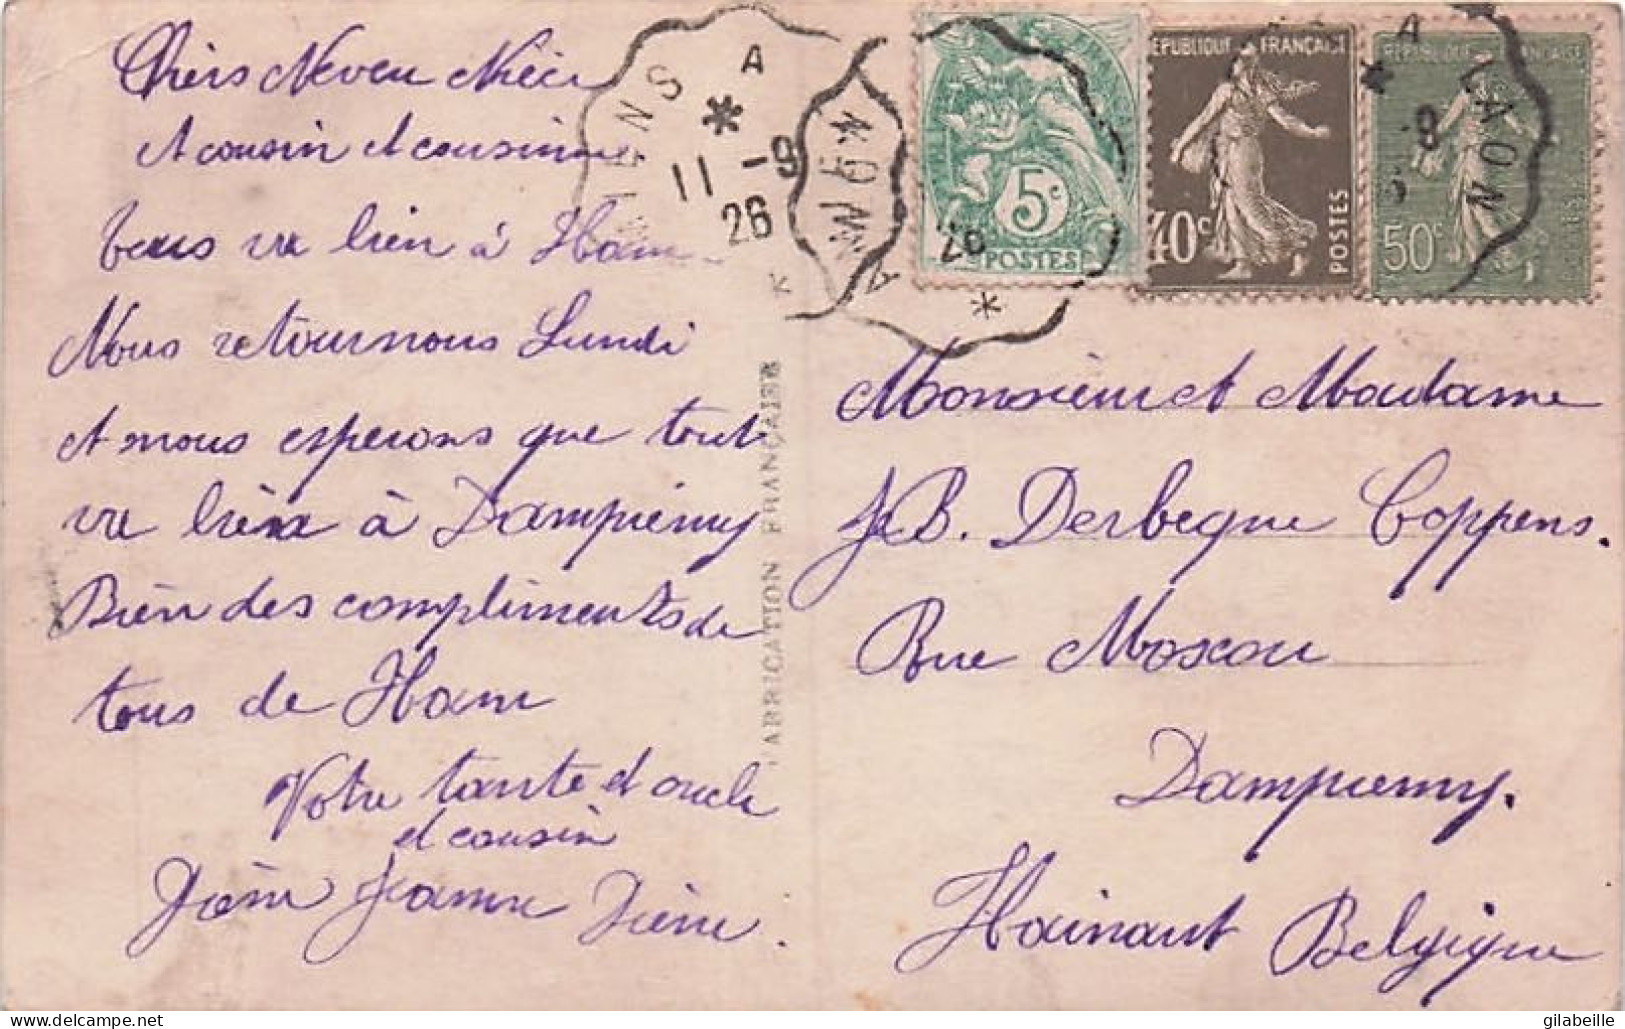 Chers Neveu Nièce
et cousin et cousine
tous va bien à Ham
Nous retournons Lundi
et nous esperons que tout
va bien à Dampremy
Bien des compliments de
tous de Ham
Votre tante et oncle
et cousin
Jeanne
FABRICATION FRANÇAISE
AMIENS A
11 -9
26
5c
POSTES
REPUBLIQUE FRANÇAISE
40c
POSTES
REPUBLIQUE FRANÇAISE
50c
LAON
Monsieur et Madame
J.B. Derbeque Coppens.
Rue Moscou
Dampremy.
Hainaut Belgique
gilabeille